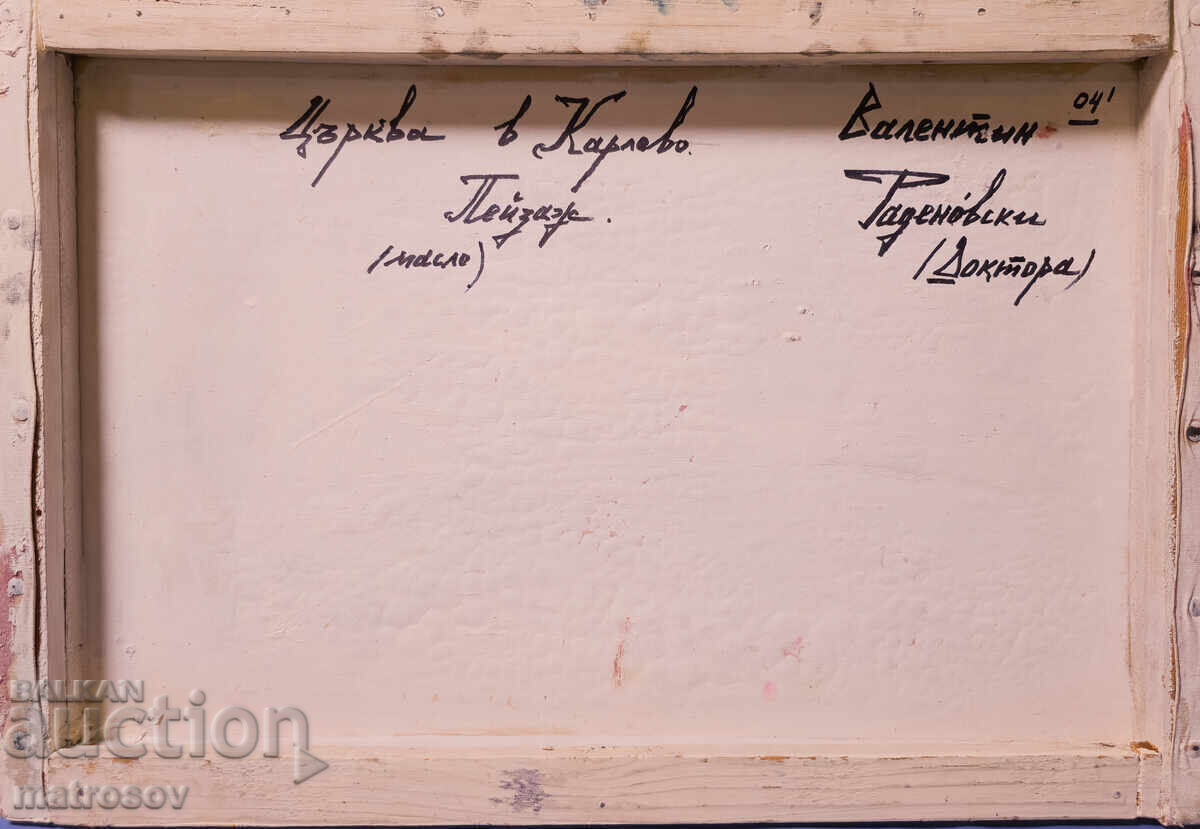 Църква в Карлово.
Пейзаж.
(масло)
Валентин 04'
Раденовски
(Доктора)
BALKAN
auction
matrosov